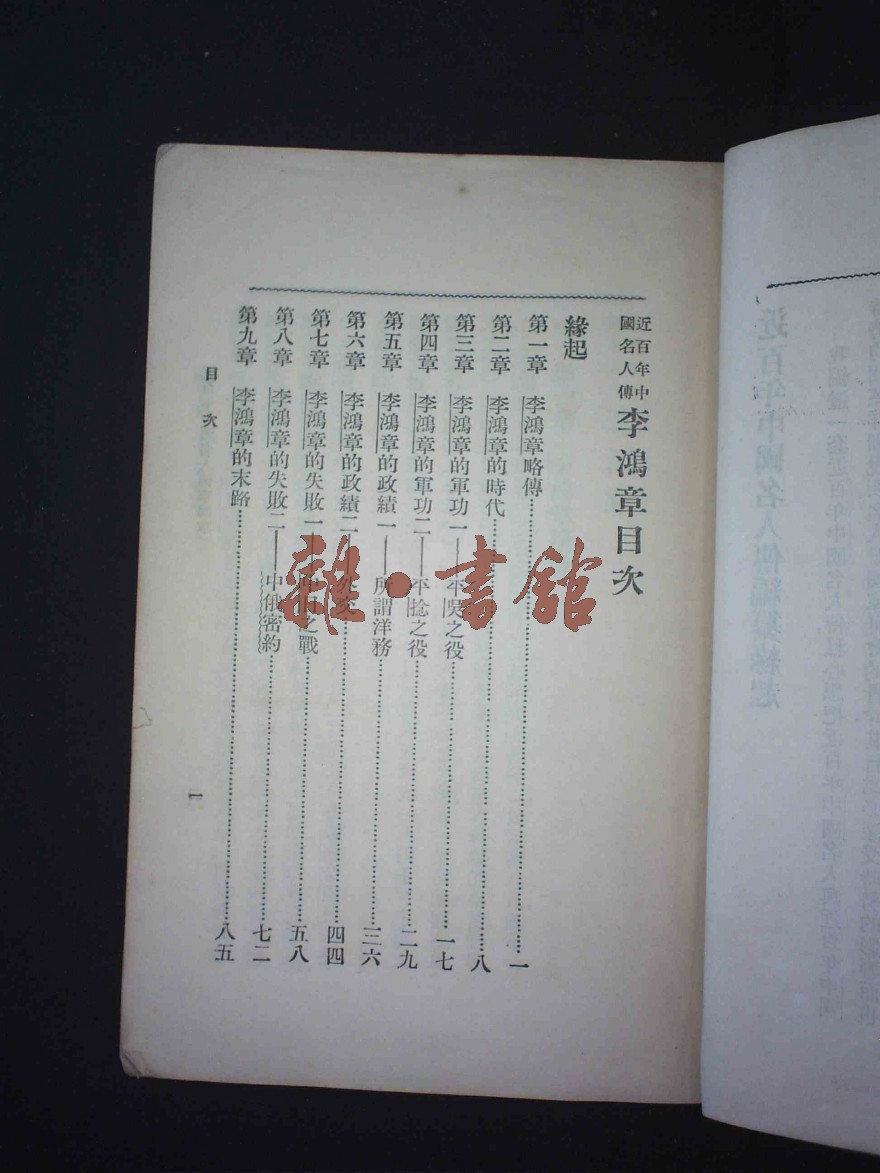 近百年中
國名人傳
李鴻章目次
緣起
第一章 李鴻章略傳……一
第二章 李鴻章的時代……八
第三章 李鴻章的軍功一——平吳之役……一七
第四章 李鴻章的軍功二——平捻之役……二九
第五章 李鴻章的政績一——所謂洋務……三六
第六章 李鴻章的政績二——外交……四四
第七章 李鴻章的失敗一——中日之戰……五八
第八章 李鴻章的失敗二——中俄密約……七二
第九章 李鴻章的末路……八五
目次
一
雜·書館
近百年中國名人傳編纂緣起